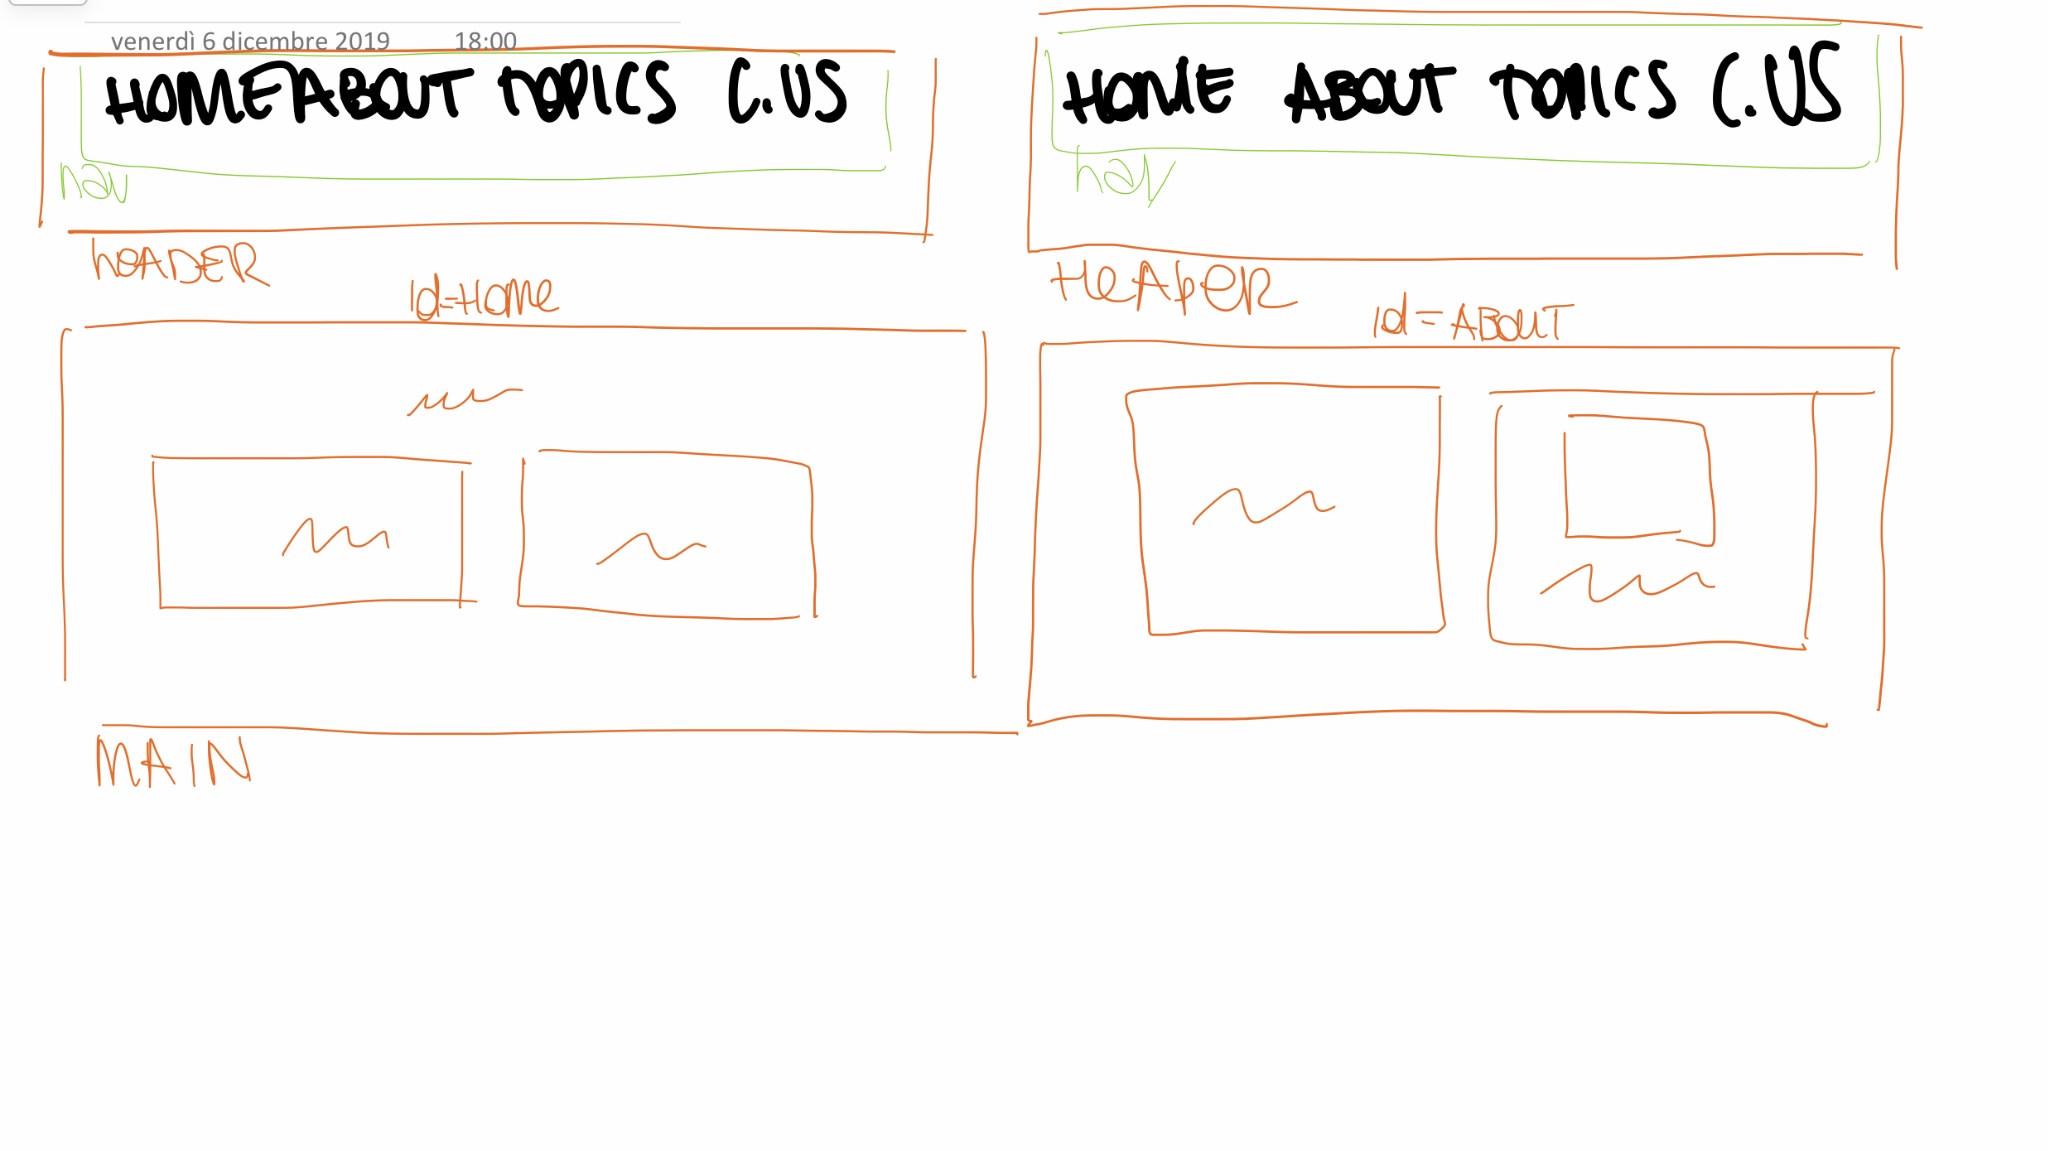 venerdì 6 dicembre 2019 18:00
HOME ABOUT TOPICS C.US
nav
HEADER
Id=HOME
MAIN
HOME ABOUT TOPICS C.US
nav
HEADER
Id=ABOUT